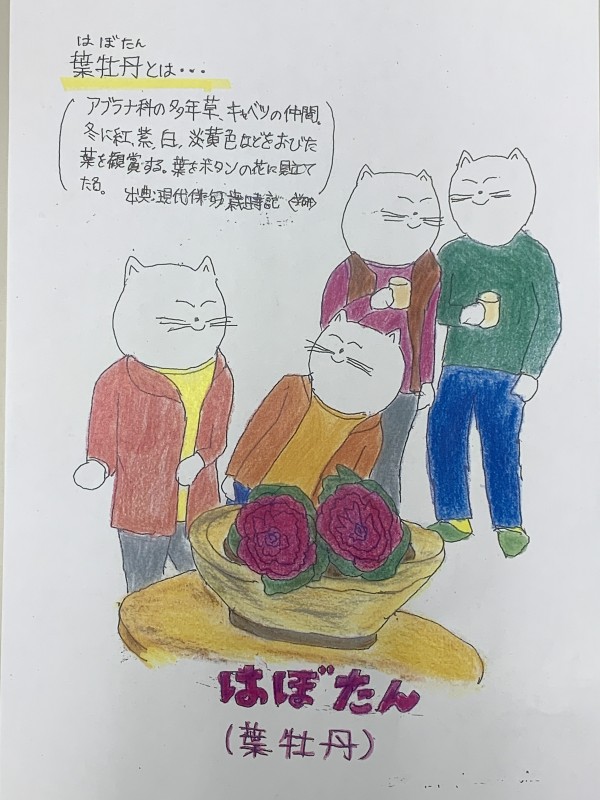 はぼたん
葉牡丹とは・・・
アブラナ科の多年草、キャベツの仲間。
冬に紅、紫、白、淡黄色などをおびた
葉を観賞する。葉をボタンの花に見立て
たる。 出典:現代俳句歳時記
はぼたん
(葉牡丹)